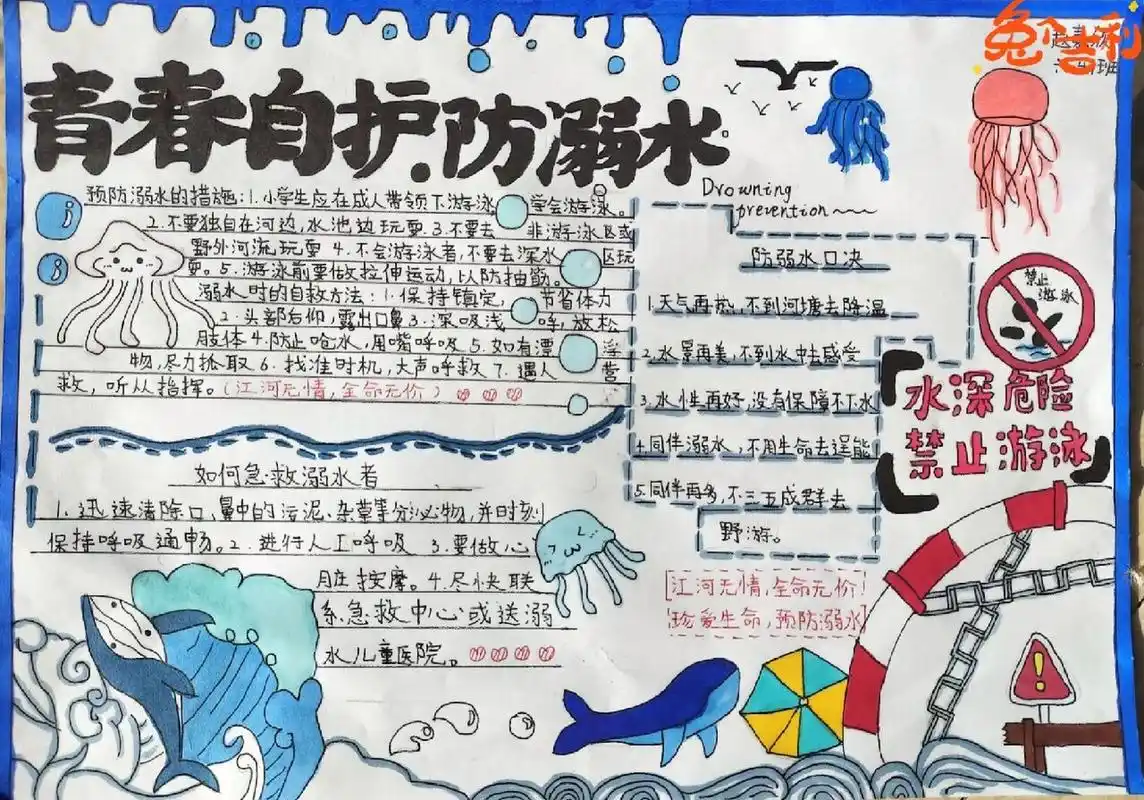 兔个吉利
六班
青春自护.防溺水
Drowning
prevention
预防溺水的措施:1.小学生应在成人带领下游泳 学会游泳。
2.不要独自在河边,水池边玩耍.3.不要去 非游泳区或
野外河流玩耍 4.不会游泳者,不要去深水 区玩
耍。5.游泳前要做拉伸运动,以防抽筋。
溺水时的自救方法:1.保持镇定, 节省体力
2.头部后仰,露出口鼻3.深吸浅 呼,放松
肢体4.防止呛水,用嘴呼吸 5.如有漂 浮
物,尽力抓取 6.找准时机,大声呼救 7.遇人 营
救,听从指挥。(江河无情,全命无价)
如何急救溺水者
1.迅速清除口、鼻中的污泥、杂草等分泌物,并时刻
保持呼吸通畅。2.进行人工呼吸 3.要做心
脏按摩。4.尽快联
系急救中心或送溺
水儿童医院。
防弱水口决
1.天气再热,不到河塘去降温
2.水景再美,不到水中去感受
3.水性再好,没有保障不下水
4.同伴溺水,不用生命去逞能
5.同伴再多,不三五成群去
野游。
[江河无情,全命无价!
珍爱生命,预防溺水]
禁止
游泳
水深危险
禁止游泳